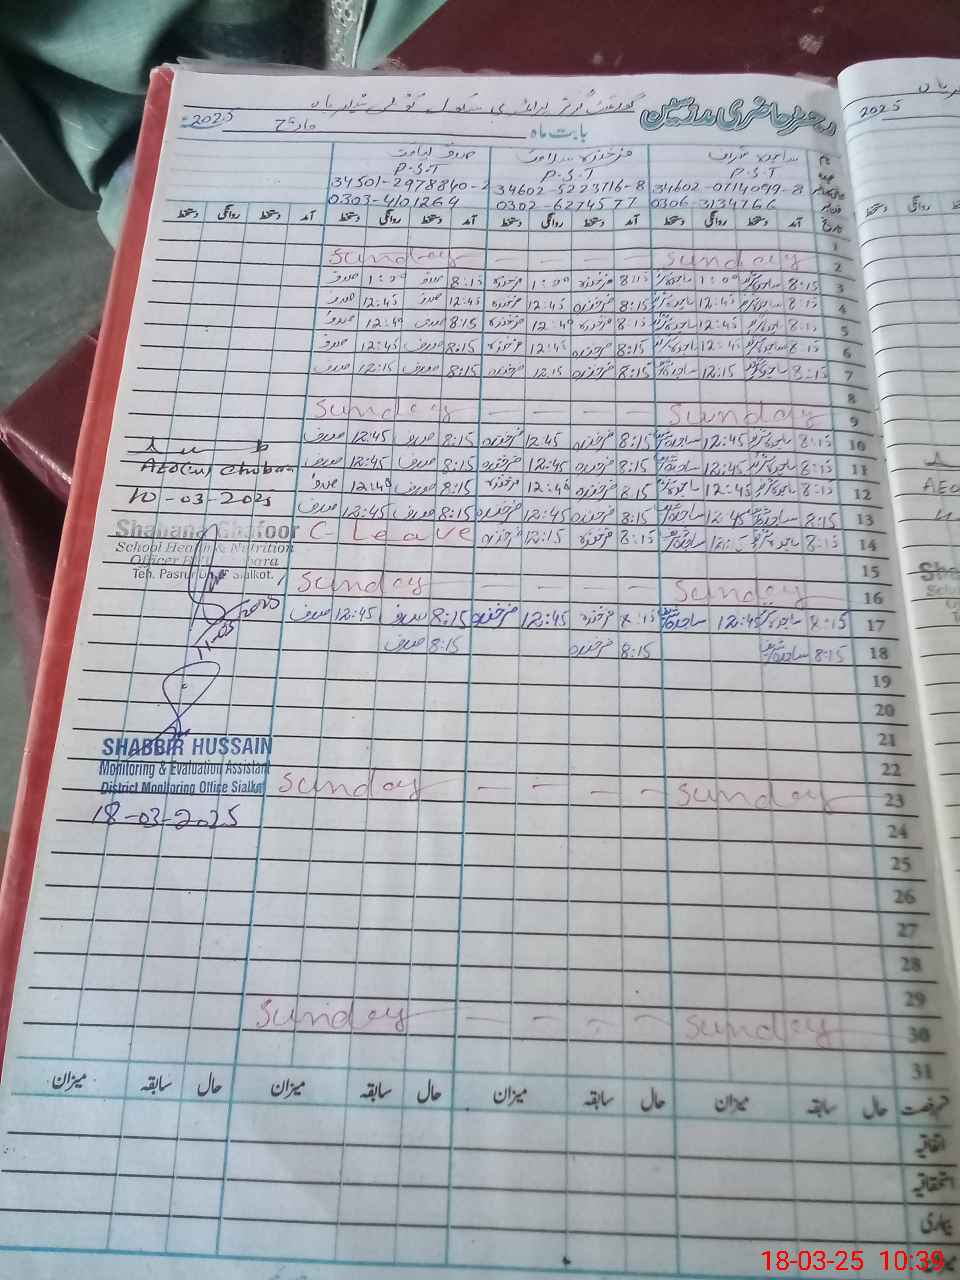 رجسٹر حاضری مدرسین گورنمنٹ گرلز پرائمری سکول
بابت ماہ مارچ 2025
2025
ساجدہ شریف فرخندہ سلامت صدف لیاقت
P.S.T P.S.T P.S.T
34602-0714099-8 34602-5223716-8 34501-2978840-2
0306-3134766 0302-6274577 0303-4101264
آمد دستخط روانگی دستخط آمد دستخط روانگی دستخط آمد دستخط روانگی دستخط دستخط روانگی دستخط
1
2 Sunday - - - - Sunday
3 8:15 ساجدہ شریف 1:00 ساجدہ شریف 8:15 فرخندہ 1:00 فرخندہ 8:15 صدف 1:00 صدف
4 8:15 ساجدہ شریف 12:45 ساجدہ شریف 8:15 فرخندہ 12:45 فرخندہ 12:45 صدف 12:45 صدف
5 8:15 ساجدہ شریف 12:45 ساجدہ شریف 8:15 فرخندہ 12:40 فرخندہ 8:15 صدف 12:40 صدف
6 8:15 ساجدہ شریف 12:45 ساجدہ شریف 8:15 فرخندہ 12:45 فرخندہ 8:15 صدف 12:45 صدف
7 8:15 ساجدہ شریف 12:15 ساجدہ شریف 8:15 فرخندہ 12:15 فرخندہ 8:15 صدف 12:15 صدف
8
9 Sunday - - - - Sunday
10 8:15 ساجدہ شریف 12:45 ساجدہ شریف 8:15 فرخندہ 12:45 فرخندہ 8:15 صدف 12:45 صدف
11 8:15 ساجدہ شریف 12:45 ساجدہ شریف 8:15 فرخندہ 12:45 فرخندہ 8:15 صدف 12:45 صدف
12 8:15 ساجدہ شریف 12:45 ساجدہ شریف 8:15 فرخندہ 12:45 فرخندہ 8:15 صدف 12:45 صدف
13 8:15 ساجدہ شریف 12:45 ساجدہ شریف 8:15 فرخندہ 12:45 فرخندہ 8:15 صدف 12:45 صدف
14 8:15 ساجدہ شریف 12:15 ساجدہ شریف 8:15 فرخندہ 12:15 فرخندہ C-Leave
15
16 Sunday - - - - Sunday
17 8:15 ساجدہ شریف 12:45 ساجدہ شریف 8:15 فرخندہ 12:45 فرخندہ 8:15 صدف 12:45 صدف
18 8:15 ساجدہ شریف 8:15 فرخندہ 8:15 صدف
19
20
21
22
23 Sunday - - - - Sunday
24
25
26
27
28
29
30 Sunday - - - - Sunday
31
AEO(W)
10-03-2025
Shabana Ghafoor
School Health & Nutrition
Officer
Teh. Pasrur Sialkot.
SHABBIR HUSSAIN
Monitoring & Evaluation Assistant
District Monitoring Office Sialkot
18-03-2025
قسم رخصت حال سابقہ میزان حال سابقہ میزان حال سابقہ میزان حال سابقہ میزان
اتفاقیہ
استحقاقیہ
بیماری
18-03-25 10:39